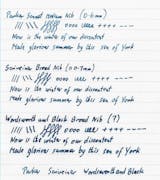 Parker Sonnet Medium Nib (0.6mm)
Now is the winter of our discontent
Made glorious summer by this son of York
Scriveiner Broad Nib (0.7mm)
Now is the winter of our discontent
Made glorious summer by this son of York
Wordsworth and Black Broad Nib (?)
Now is the winter of our discontent
Made glorious summer by this son of York
Parker Scriveiner Wordsworth and Black